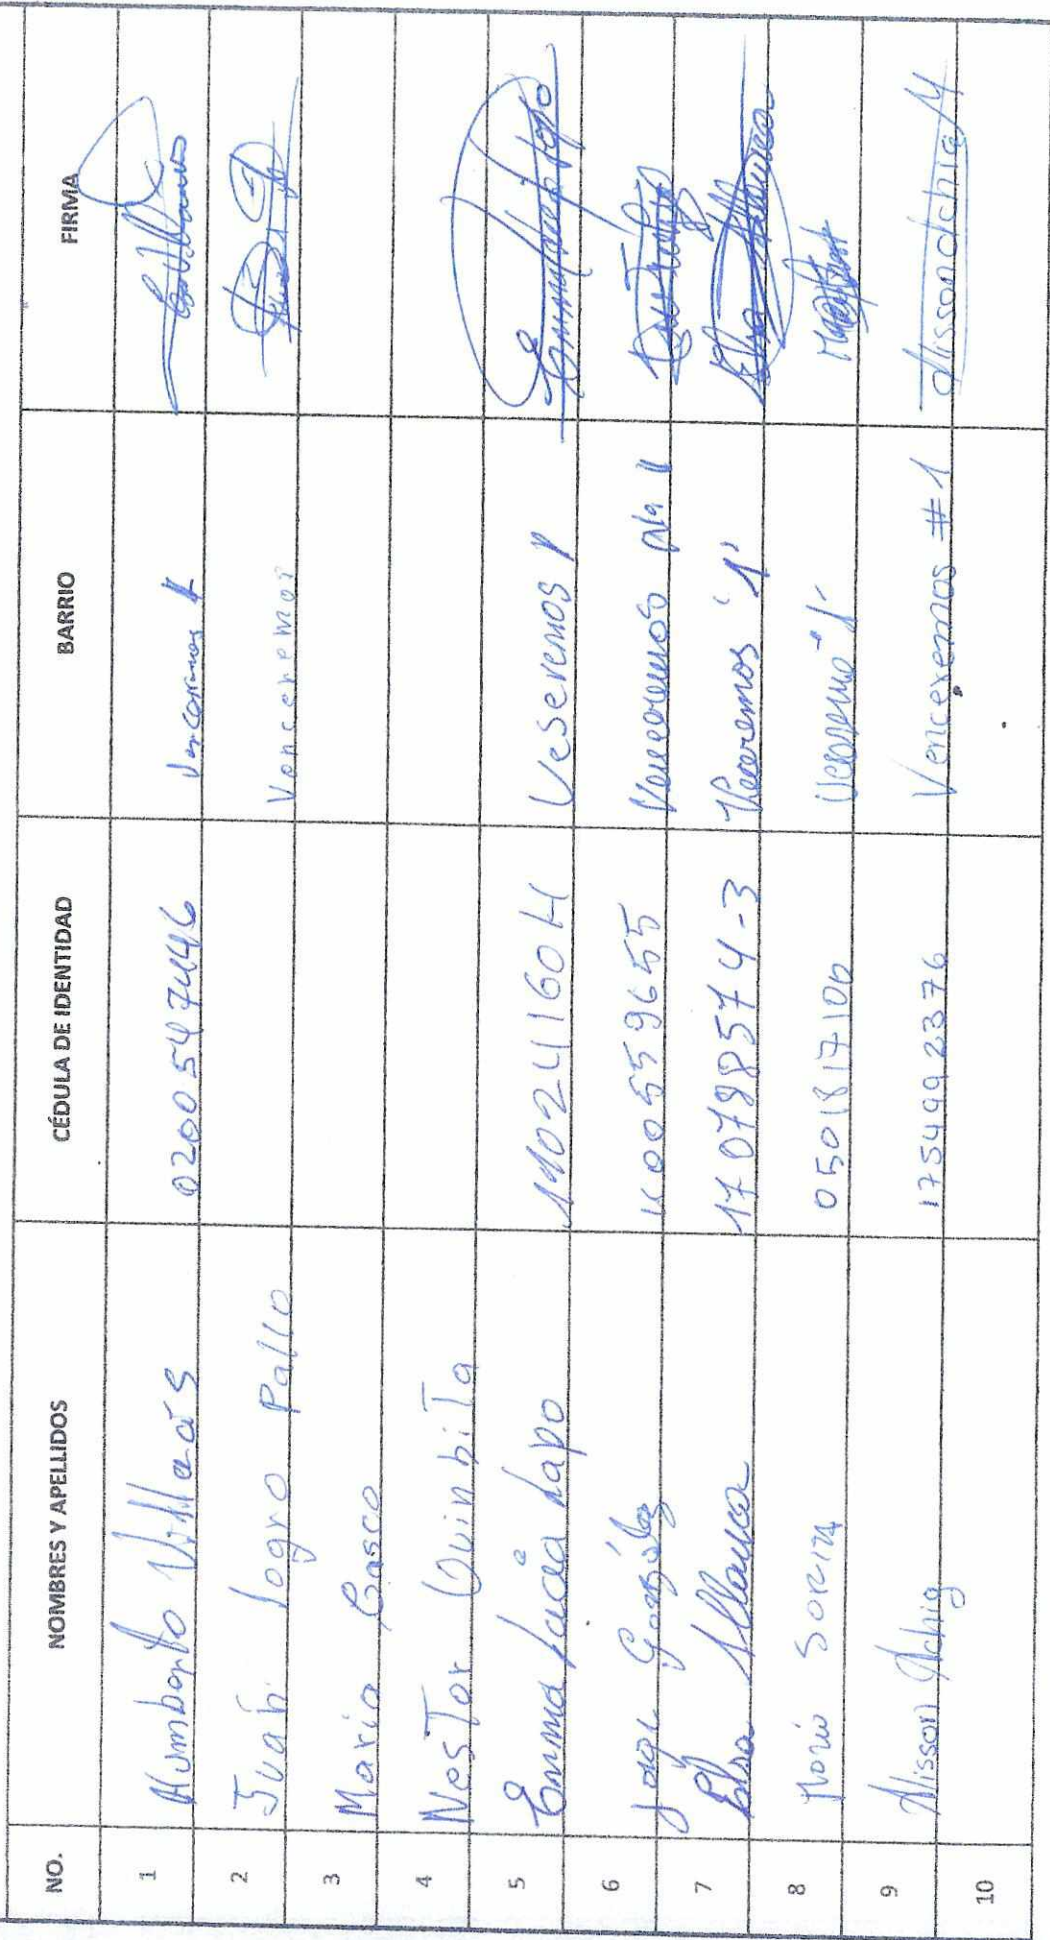 NO. NOMBRES Y APELLIDOS CÉDULA DE IDENTIDAD BARRIO FIRMA
1 Humberto Villacís 0200547446
2 Juan Togro Pallo Vencenemos
3 Maria Casco
4 Nestor Quinbita
5 Emma Lucía Lapo 110241160H Veseremos
6 Jorge González 1600559655
7 Elsa Allauca 170798574-3 Veceremos "1"
8 Mario Soria 0501817100
9 Alisson Achig 1754992376 Venceremos #1 Alissonachig M
10